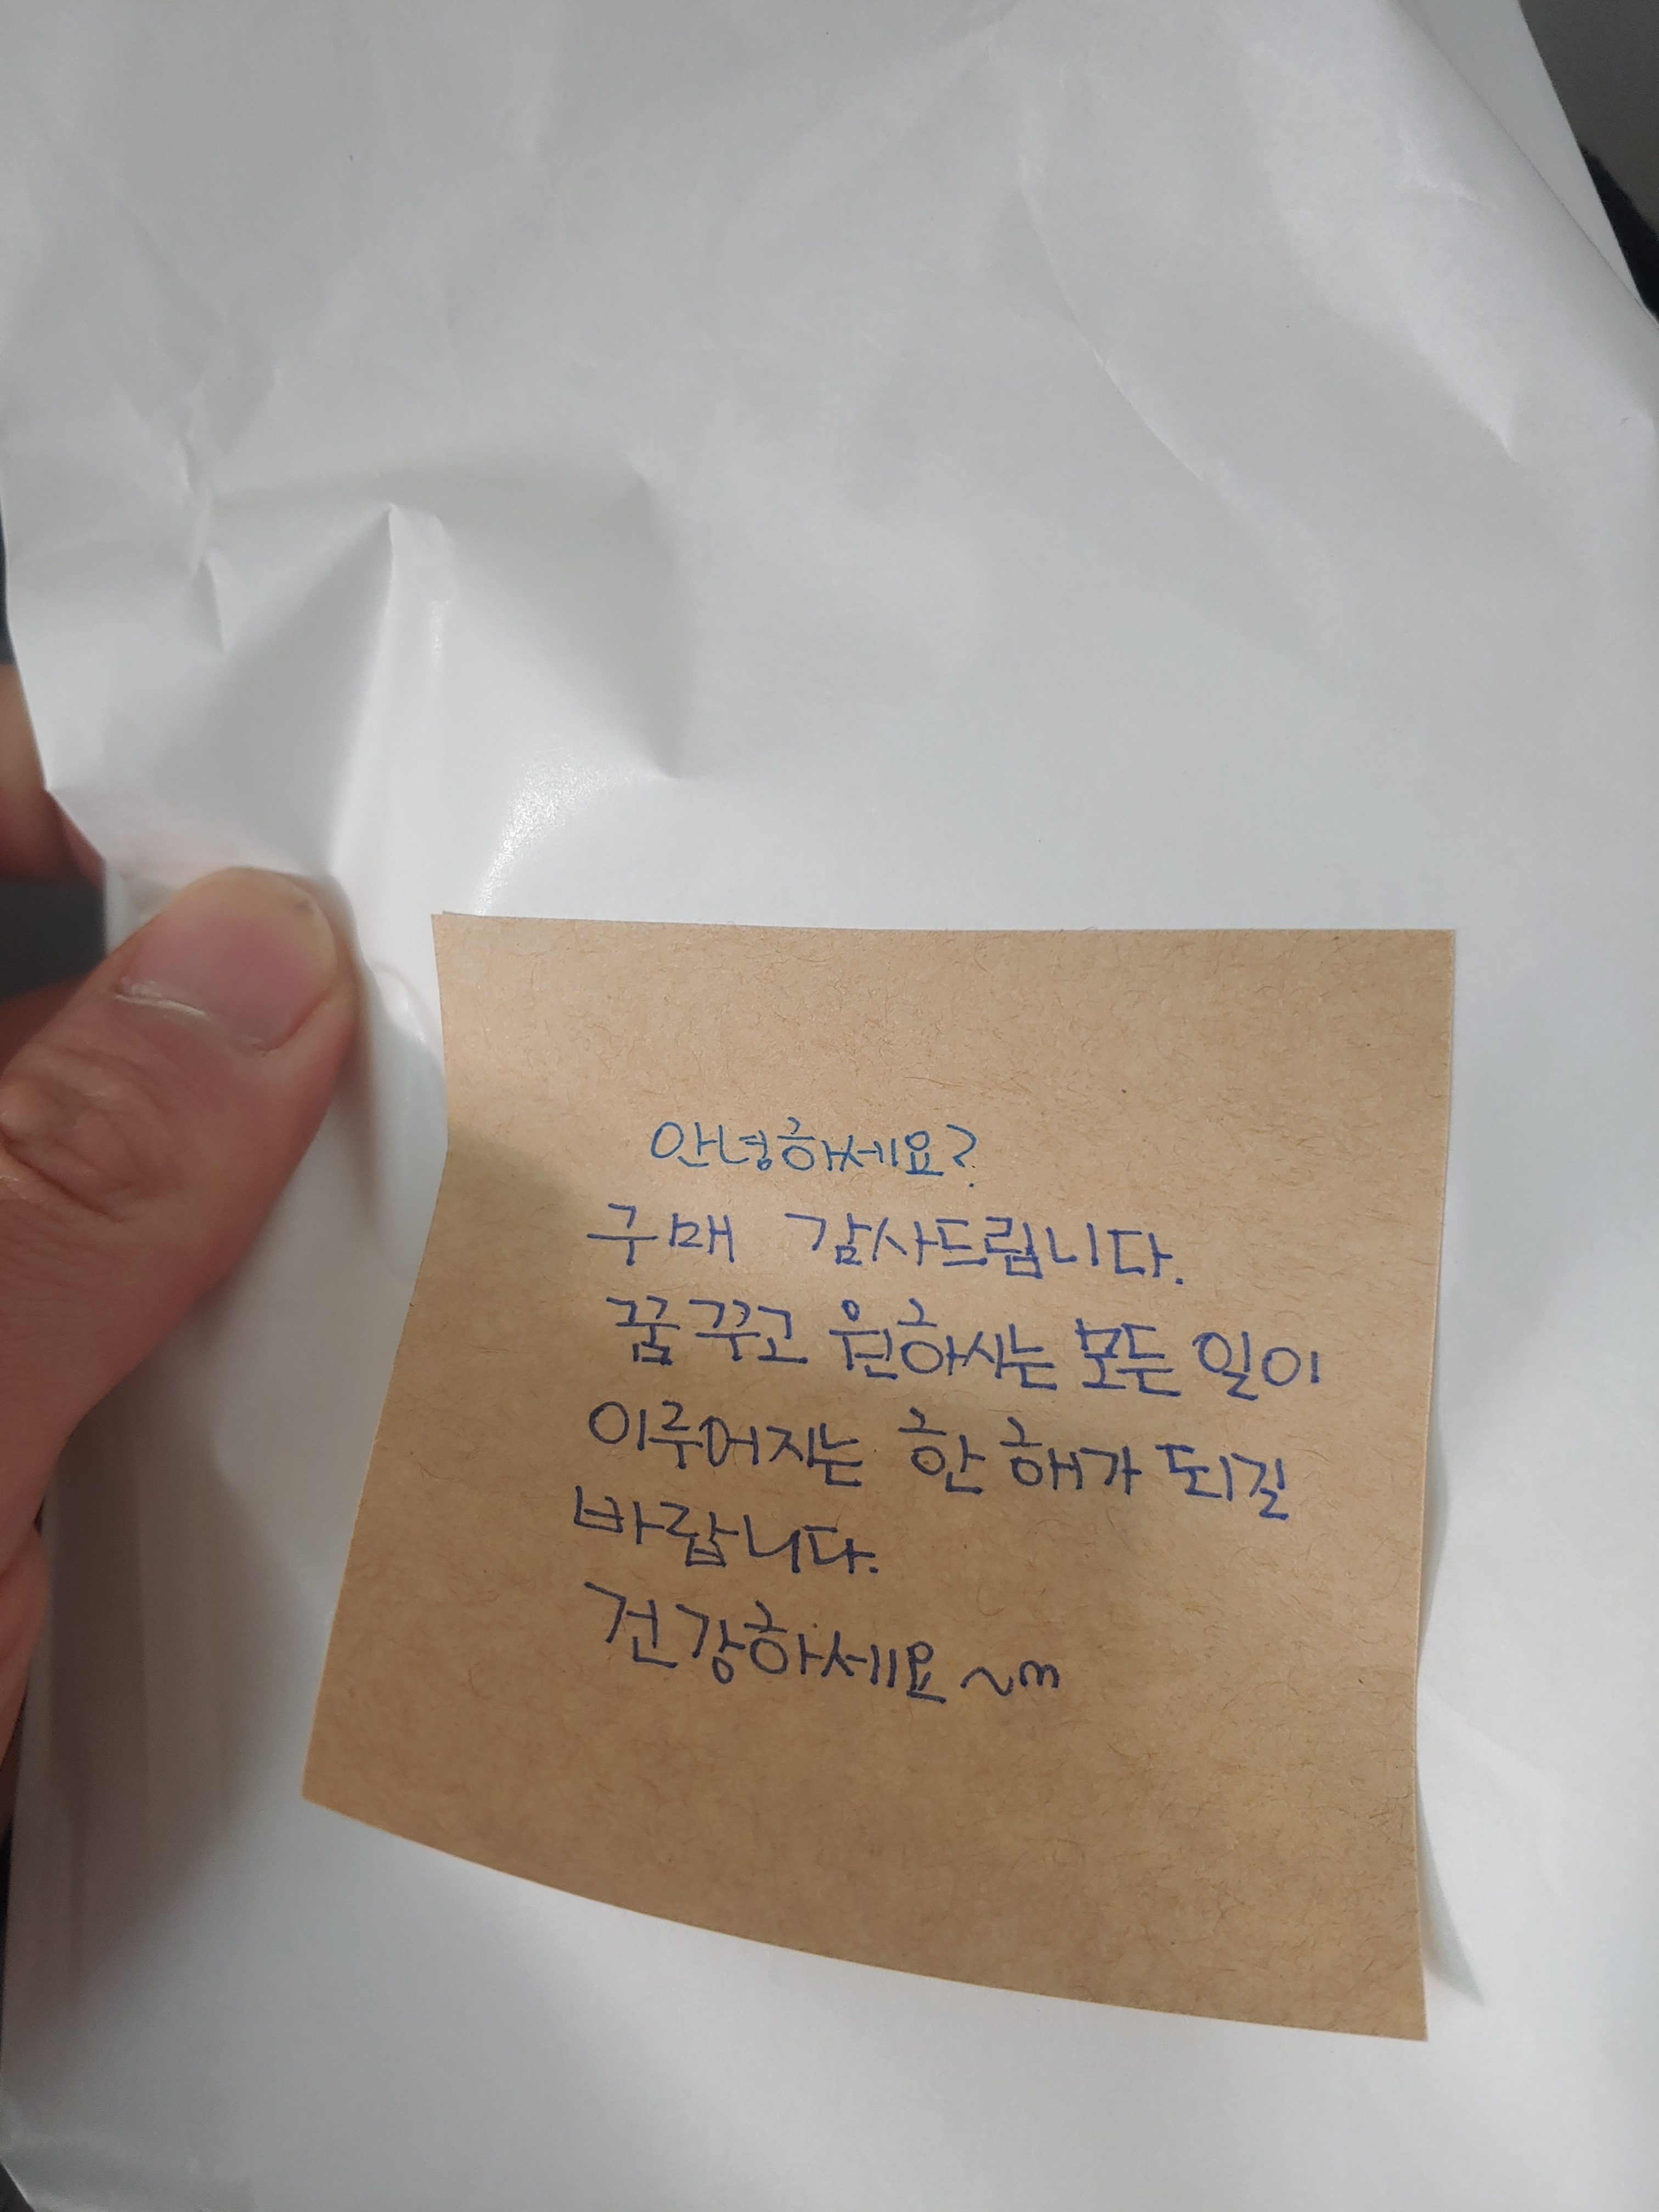 안녕하세요?
구매 감사드립니다.
꿈꾸고 원하시는 모든 일이
이루어지는 한 해가 되길
바랍니다.
건강하세요~m